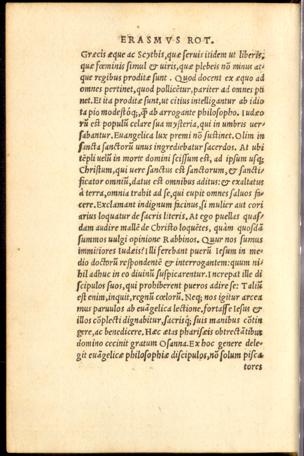 ERASMVS ROT.
Græcis æque ac Scythis, quæ seruis itidem ut liberis,
quæ fœminis simul & uiris, quæ plebeis nō minus at-
que regibus proditæ sunt. Quod docent ex æquo ad
omnes pertinet, quod pollicētur, pariter ad omnes pti
net. Et ita proditæ sunt, ut citius intelligantur ab idio
ta pio modestóq;, ꝗ̃ ab arrogante philosopho. Iudæo
rū est populū celare sua mysteria, qui in umbris uer-
sabantur. Euangelica lux premi nō sustinet. Olim in
sancta sanctorū unus ingrediebatur sacerdos. At ubi
tēpli uelū in morte domini scissum est, ad ipsum usq;
Christum, qui uere sanctus est sanctorum, & sancti-
ficator omniū, datus est omnibus aditus: & exaltatus
à terra, omnia trahit ad se, qui cupit omnes saluos fie
ri. Exclamant indignum facinus, si mulier aut cori
arius loquatur de sacris literis. At ego puellas quas
dam audire mallē de Christo loquētes, quàm quosdā
summos uulgi opinione Rabbinos. Quur nos sumus
immitiores Iudæis? Illi ferebant puerū Iesum in me-
dio doctorū respondentē & interrogantem: quum ni-
hil adhuc in eo diuinū suspicarentur. Increpat ille di
scipulos suos, qui prohiberent pueros adire se: Taliū
est enim, inquit, regnū cœlorū. Neq; nos igitur arcea
mus paruulos ab euāgelica lectione, fortasse Iesus &
illos cōplecti dignabitur, sacrisq; suis manibus cōtin
gere, ac benedicere. Hæc ætas pharisæis obtrectātibus
domino cecinit gratum Osanna. Ex hoc genere dele-
git euāgelicæ philosophiæ discipulos, nō solum pisca
tores